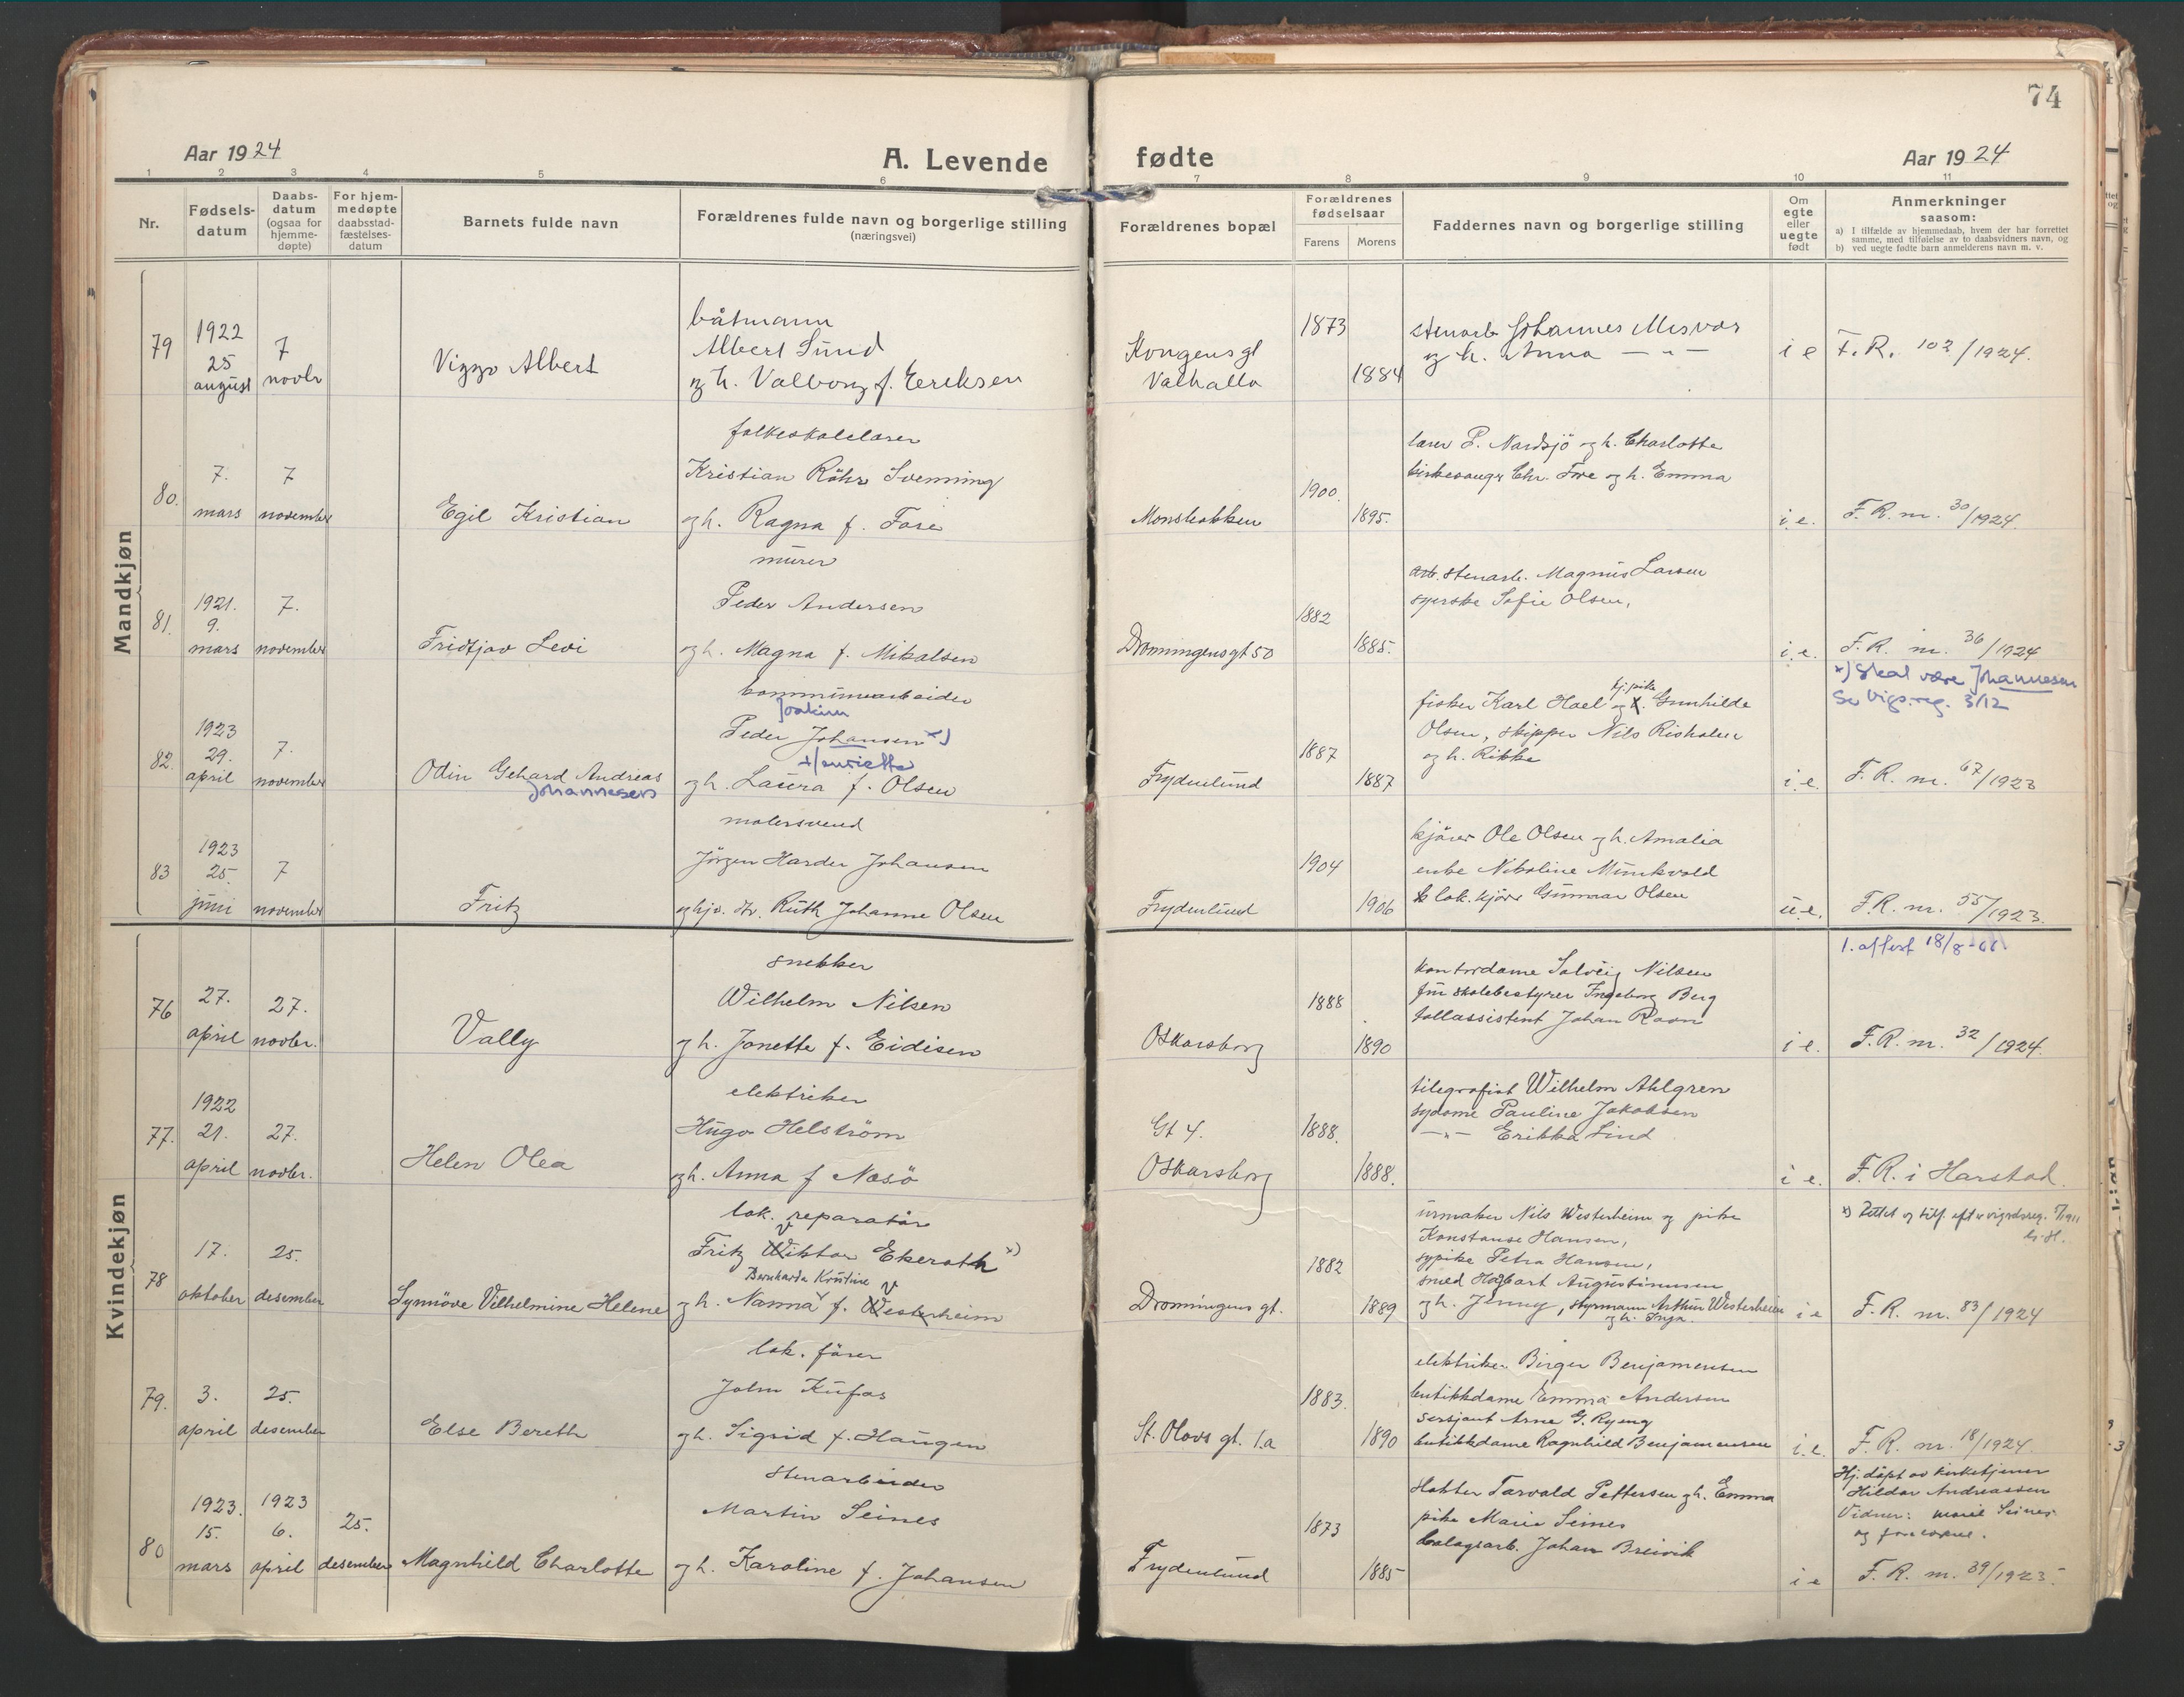 74
Aar 1924
A. Levende fødte
Aar 1924
1 2 3 4 5 6 7 8 9 10 11
Nr.
Fødsels-
datum
Daabs-
datum
(ogsaa for
hjemme-
døpte)
For hjem-
medøpte
daabsstad-
fæstelses-
datum
Barnets fulde navn
Forældrenes fulde navn og borgerlige stilling
(næringsvei)
Forældrenes bopæl
Forældrenes
fødselsaar
Farens Morens
Faddernes navn og borgerlige stilling
Om
egte
eller
uegte
født
Anmerkninger
saasom:
a) I tilfælde av hjemmedaab, hvem der har forrettet
samme, med tilføielse av to daabsvidners navn, og
b) ved uegte fødte barn anmelderens navn m. v.
Mandkjøn
79
1922
25
august
7
novbr
Viggo Albert
båtmann
Albert Sund
og h. Valborg f. Eeriksen
Kongensgt
Valhalla
1873
1884
stenarb Johannes Misvær
og h. Anna — " —
i e
F. R. 102/1924.
80.
7.
mars
7
november
Egil Kristian
folkeskolelærer
Kristian Röhr Svenning
og h. Ragna f. Fore
Monsbakken
1900.
1895.
lærer P. Nordsjö og h. Charlotte
kirkesanger Chr. Fore og h. Emma
i.e.
F. R. nr. 30/1924.
81.
1921.
9.
mars
7.
november
Fridtjov Levi
murer
Peder Andersen
og h. Magna f. Mikalsen
Dronningensgt 50
1882
1885.
arb. stenarb. Magnus Larsen
syerske Sofie Olsen,
i.e.
F. R. nr. 36/1924
x) Skal være Johannesen
Se Vigs.reg. 3/12
82.
1923
29.
april
7.
november
Odin Gehard Andreas
Johannesen
kommunearbeider
Joakim
Peder Johansen x)
Henriette
og h. Laura f. Olsen
Frydenlund
1887
1887
tj.pike
fisker Karl Hoel og Gunhilde
Olsen, skipper Nils
og h. Rikke
i.e.
F. R. nr. 67/1923
83
1923
25.
juni
7
november
Fritz
malersvend
Jörgen Harder Johansen
og hjv. Ruth Johanne Olsen
Frydenlund
1904
1906
kjörer Ole Olsen og h. Amalia
enke Nikoline Munkvold
lok. kjörer Gunnar Olsen
u.e.
F.R. nr. 55/1923.
1. attest 18/8-
Kvindekjøn
76
27.
april
27.
novbr.
Vally
snekker
Wilhelm Nilsen
og h. Janette f. Eidisen
Oskarsborg
1888
1890
kontordame Solveig Nilsen
fru skolebestyrer Ingeborg Berg
tollassistent Johan Ravn
i e.
F. R. nr. 32/1924.
77.
1922
21.
april
27.
novbr.
Helen Olea
elektriker
Hugo Helström
og h. Anna f Næsö
Gt 4.
Oskarsborg
1888.
1888.
telegrafist Wilhelm Ahlgren
sydame Pauline Jakobsen
— " — Erikka Lind
i e.
F. R. i Harstad.
78
17.
oktober
25.
desember
Synnöve Vilhelmine Helene
lok. reparatör
Fritz Viktor Ekeroth x)
Bernharda Kristine
og h. Nanna f. Vesterheim
Dronningens gt.
1882
1889
urmaker Nils Westerheim og pike
Konstanse Hansen,
sypike Petra Hansen,
smed Hagbart Augustinussen
og h. Jenny, styrmann Arthur Westerheim
og h. Inga.
i e
x) Rettet og tilf. eft. vigselsreg. 5/1911
F. R. nr. 83/1924
79.
3.
april
25.
desember
Else Bereth
lok. förer
John Kufas
og h. Sigrid f. Haugen
St. Olavs gt. 1.a
1883.
1890
elektriker Birger Benjaminsen
butikkdame Emma Andersen
sersjant Arne G. Ryeng
butikkdame Ragnhild Benjaminsen
i.e.
F. R. nr. 18/1924.
80
1923.
15.
mars
1923
6.
april
25.
desember
Magnhild Charlotte
stenarbeider
Martin Seines
og h. Karoline f. Johansen
Frydenlund
1873
1885
Torvald Pettersen og h. Emma
pike Marie Seines
Johan Breivik
i e
Hj. döpt av kirketjener
Hildor Andreassen
Vidner: Marie Seines
og foreldrene.
F. R. nr. 39/1923.